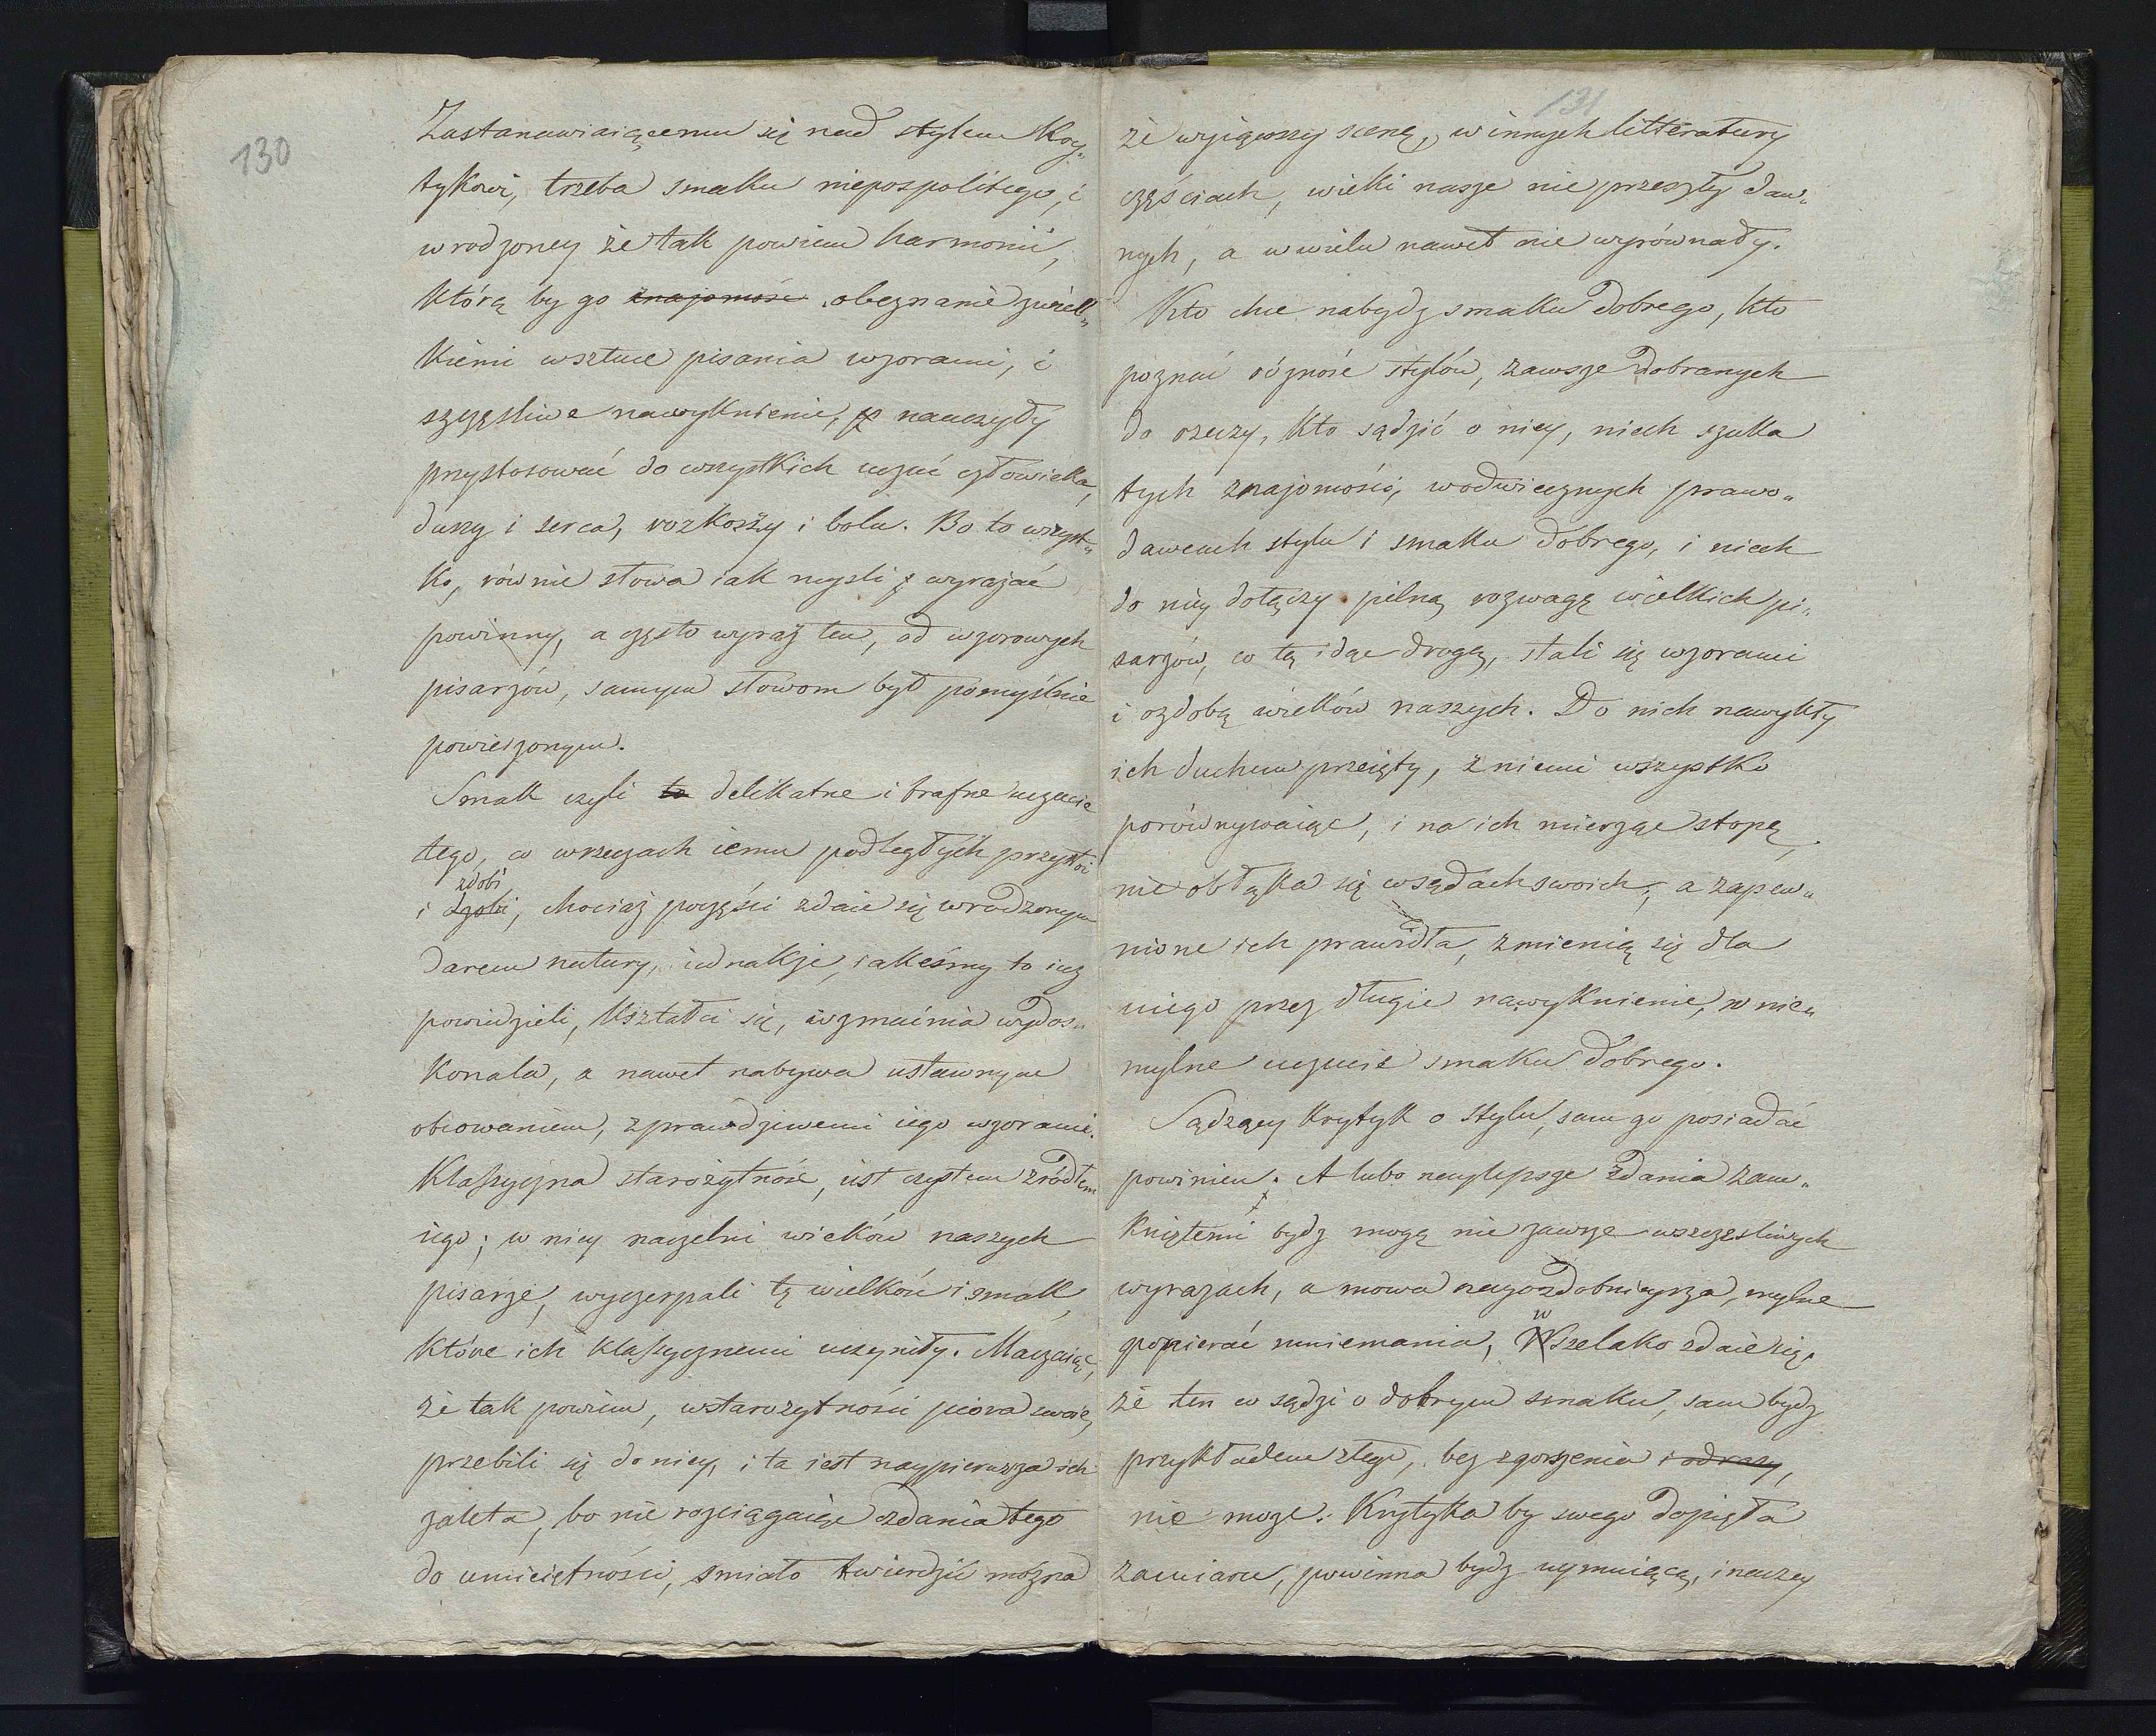 130
Zastanawiaiącemu się nad stylem Kry„
tykowi, trzeba smaku niepospolitego, i
wrodzoney że tak powiem harmonii,
którą by go znajomość obeznanie z wiel„
kiemi w sztuce pisania wzorami, i
szczęśliwe nawyknienie, nauczyły
przystosować do wszystkich uczuć człowieka,
duszy i serca, rozkoszy i bolu. Bo to wszyst„
ko, równie słowa iak mysli wyrażać
powinny, a często wyraz ten, od wzorowych
pisarzów, samym słowom był pomyślnie
powierzonym.
Smak czyli to delikatne i trafne uczucie
tego, co w rzeczach iemu podległych przystoi
zdobi
i zdobi, chociaż poczęści zdaie się wrodzonym
darem natury, iednakże, iakeśmy to iuż
powiedzieli, kształci się, wzmacnia wydos„
konala, a nawet nabywa ustawnym
obcowaniem, z prawdziwemi iego wzorami.
Klassyczna starożytność, iest czystem źródłem
iego; w niey naczelni wieków naszych
pisarze, wyczerpali tę wielkość i smak,
które ich klassycznemi uczyniły. Maczaiąc,
że tak powiem, w starożytności pióra swoie,
przebili się do niey, i ta iest naypierwsza ich
zaleta, bo nie rozciągaiąc zdania tego
do umieiętności, smiało twierdzić można
131
że wyiąwszy scenę, w innych litteratury
częściach, wieki nasze nie przeszły daw„
nych, a w wielu nawet nie wyrównały.
Kto chce nabydz smaku dobrego, kto
poznać różność stylów, zawsze dobranych
do rzeczy, kto sądzić o niey, niech szuka
tych znajomości, w odwiecznych prawo„
dawcach stylu i smaku dobrego, i niech
do niey dołączy pilną rozwagę wielkich pi„
sarzów, co tą idąc drogą, stali się wzorami
i ozdobą wieków naszych. Do nich nawykły
ich duchem przeięty, z niemi wszystko
porównywaiąc, i na ich mierząc stopę,
nie obłąka się w sądach swoich, a zapew„
nione ich prawidła, zmienią się dla
niego przez długie nawyknienie, w nie„
mylne uczucie smaku dobrego.
Sądzący krytyk o stylu, sam go posiadać
powinien. A lubo naylepsze zdania zam„
kniętemi bydz mogą nie zawsze w szczęśliwych
wyrazach, a mowa nayozdobnieysza, mylne
w
popierać mniemania, Wszelako zdaie się,
że ten co sądzi o dobrym smaku, sam bydz
przykładem złego, bez zgorszenia i odrazy,
nie może. Krytyka by swego dopięła
zamiaru, powinna bydz uymuiącą, inaczey